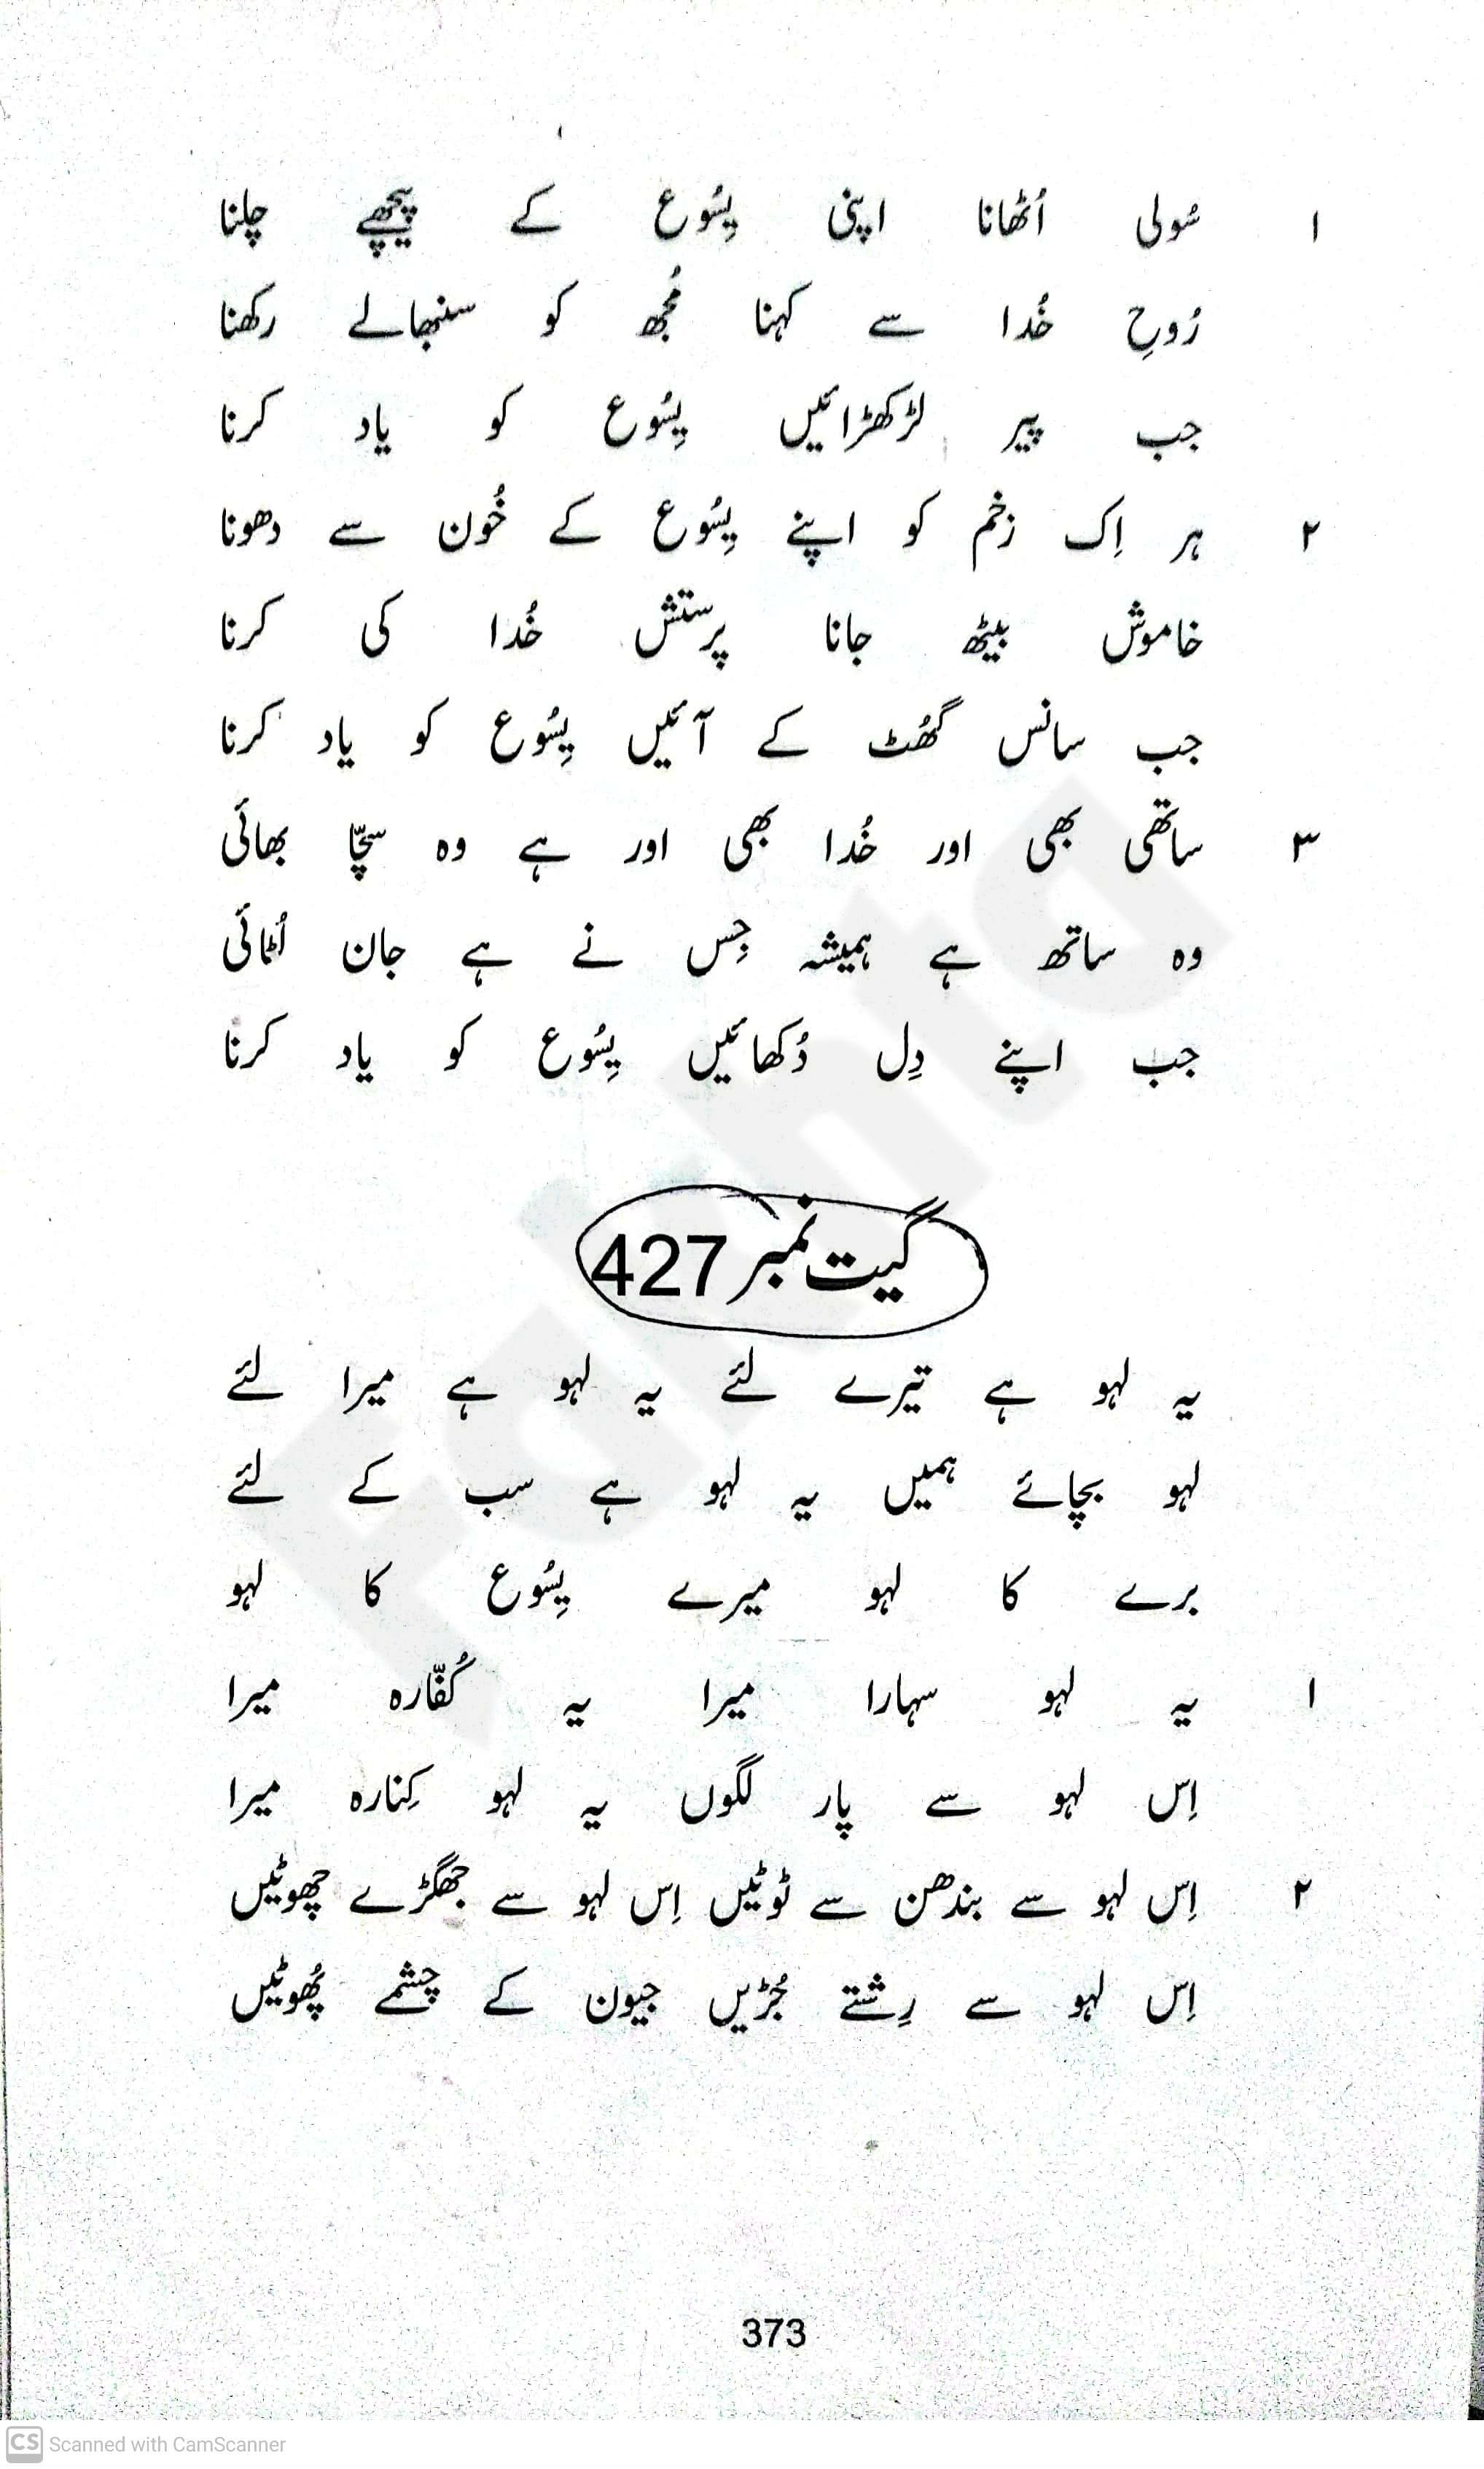 ۱ سُولی اُٹھانا اپنی یِسُوع کے پیچھے چلنا
رُوحِ خُدا سے کہنا مُجھ کو سنبھالے رکھنا
جب پیر لڑکھڑائیں یِسُوع کو یاد کرنا
۲ ہر اِک زخم کو اپنے یِسُوع کے خُون سے دھونا
خاموش بیٹھ جانا پرستش خُدا کی کرنا
جب سانس گھُٹ کے آئیں یِسُوع کو یاد کرنا
۳ ساتھی بھی اور خُدا بھی اور ہے وہ سچّا بھائی
وہ ساتھ ہے ہمیشہ جِس نے ہے جان لُٹائی
جب اپنے دِل دُکھائیں یِسُوع کو یاد کرنا
گیت نمبر 427
یہ لہو ہے تیرے لئے یہ لہو ہے میرا لئے
لہو بچائے ہمیں یہ لہو ہے سب کے لئے
برے کا لہو میرے یِسُوع کا لہو
۱ یہ لہو سہارا میرا یہ کُفّارہ میرا
اِس لہو سے پار لگوں یہ لہو کِنارہ میرا
۲ اِس لہو سے بندھن سے ٹوٹیں اِس لہو سے جھگڑے چھوٹیں
اِس لہو سے رِشتے جُڑیں جیون کے چشمے پُھوٹیں
373
CS Scanned with CamScanner